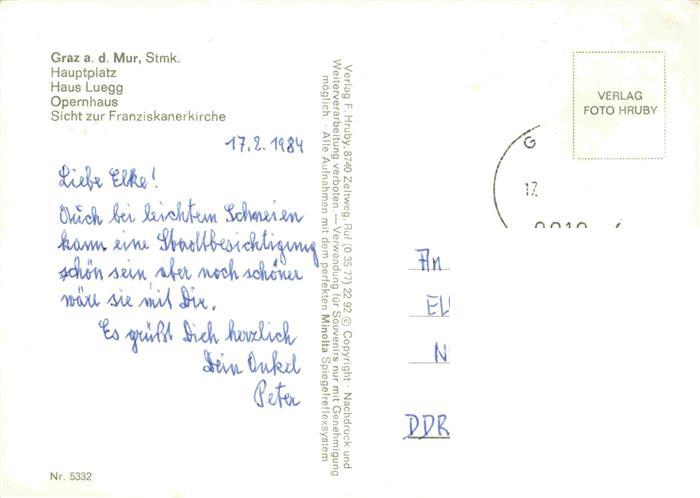 Graz a. d. Mur, Stmk.
Hauptplatz
Haus Luegg
Opernhaus
Sicht zur Franziskanerkirche
17.2.1984
Liebe Elke!
Auch bei leichtem Schneien
kann eine Stadtbesichtigung
schön sein, aber noch schöner
wäre sie mit Dir.
Es grüßt Dich herzlich
Dein Onkel
Peter
Nr. 5332
Verlag F. Hruby, 8740 Zeltweg, Ruf (0 35 77) 22 92 © Copyright · Nachdruck und
Weiterverarbeitung verboten — Verwendung für Souvenirs nur mit Genehmigung
möglich. · Alle Aufnahmen mit dem perfekten Minolta Spiegelreflexsystem
VERLAG
FOTO HRUBY
G
17.
An
DDR